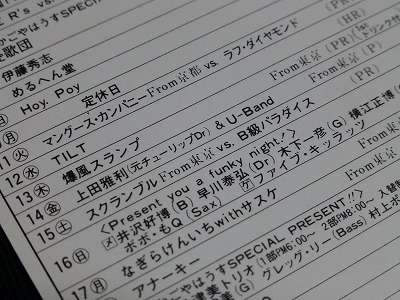 歌団
伊藤秀志
めるへん堂
Hoy. Poy
定休日
10㊊ マングース・カンパニー From京都 vs. ラフ・ダイヤモンド (HR)
11㊋ TILT From東京 (PR)
12㊌ 爆風スランプ From東京 (P)
13㊍ 上田雅利(元チューリップDr) & U-Band (PR)
14㊎ スクランブル From東京 vs. B級パラダイス
15㊏ <Present you a funky night!>
㋱井沢好博(B) 早川泰弘(Dr) 木下一彦(G) 横江正博
ポポ・もQ(Sax) ㋘ファイブ・キッラッツ
16㊐ なぎらけんいちwithサスケ From東京
17㊊ アナーキー From東京
ごやはうすSPECIAL PRESENT!!
津美トリオ(1部PM6:00〜 2部PM8:00〜 入替
(G) グレッグ・リー(Bass) 村上ポ